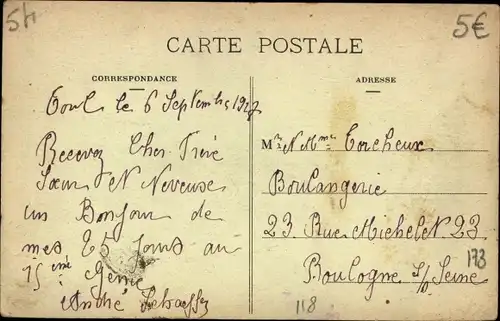 54
5€
CARTE POSTALE
CORRESPONDANCE
ADRESSE
Toul le 6 Septembre 1927
Recevez Cher Frère
Sœur et Neveuse
un Bonjour de
mes 25 jours au
15ème Génie
André
Mr et Mme Torcheux
Boulangerie
23 Rue Michelet 23
Boulogne s/ Seine
173
118